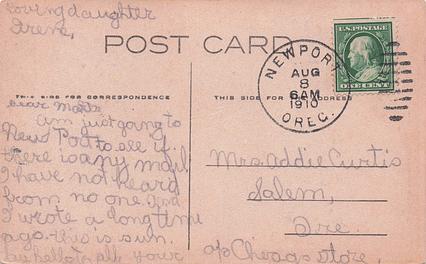 loving daughter
Irene,
POST CARD
THIS SIDE FOR CORRESPONDENCE
THIS SIDE FOR ADDRESS
NEWPORT
AUG
8
6AM
1910
OREG.
U.S. POSTAGE
ONE CENT
dear
am just going to
New Port to see if
there is any mail
I have not heard
from no one. And
I wrote a long time
ago. this is sun.
hello to all your
Mrs. Addie Curtis
Salem,
Ore.
c/o Chicago store,